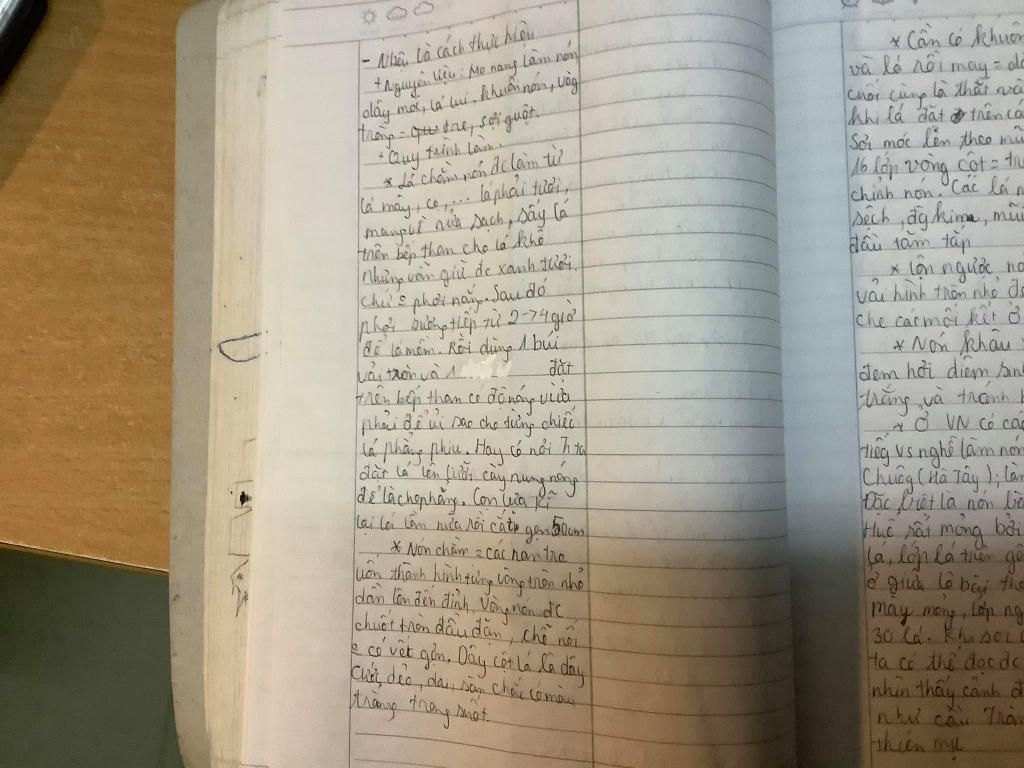 - Nhiều là cách thực hiện
+ Nguyên liệu: Mo nang làm nón
dây móc, lá lụi, khuôn nón, vòng
tròng = tre, sợi guột.
+ Quy trình làm.
* Lá chằm nón đc làm từ
lá mây, cọ, ... lá phải tươi,
mang về rửa sạch, sấy lá
trên bếp than cho lá khô
nhưng vẫn giữ đc xanh tươi.
chứ phơi nắng. Sau đó
phơi sương tiếp từ 2-74 giờ
để lá mềm. Rồi dùng 1 búi
vải tròn và 1 đặt
trên bếp than có độ nóng vừa
phải để ủi sao cho từng chiếc
lá phẳng phiu. Hay có nơi ta
đặt lá lên lưỡi cày nung nóng
để là cho phẳng. Con lựa kĩ
lại lần nữa rồi cắt gọn 50cm
* Nón chằm = các nan tre
uốn thành hình từng vòng tròn nhỏ
dần lên đến đỉnh, vòng nón đc
chuốt tròn đều đặn, chỗ nối
có vết gợn. Dây cột lá là dây
cước, dẻo, dai, săn chắc có màu
trắng trong suốt.
* Cần có khuôn
và lá rồi may =
cuối cùng là thắt
khi lá đặt trên
Sợi móc len theo
16 lớp vòng cột =
chính nón. Các lá
sạch, kim,
đầu tăm tắp
* lộn ngược
vải hình tròn nhỏ
che các mối kết ở
* Nón khâu
đem hơi diêm
trắng và tránh
* Ở VN có
tiếg vs nghề làm nón
Chuôg (Hà Tây);
Đặc biệt là nón
Huế rất mỏng bởi
lá, lớp lá trên
ở giữa là
may mỏng, lớp
30 lá. Khi soi
ta có thể đọc đc
nhìn thấy cảnh
như cầu
thiên mụ